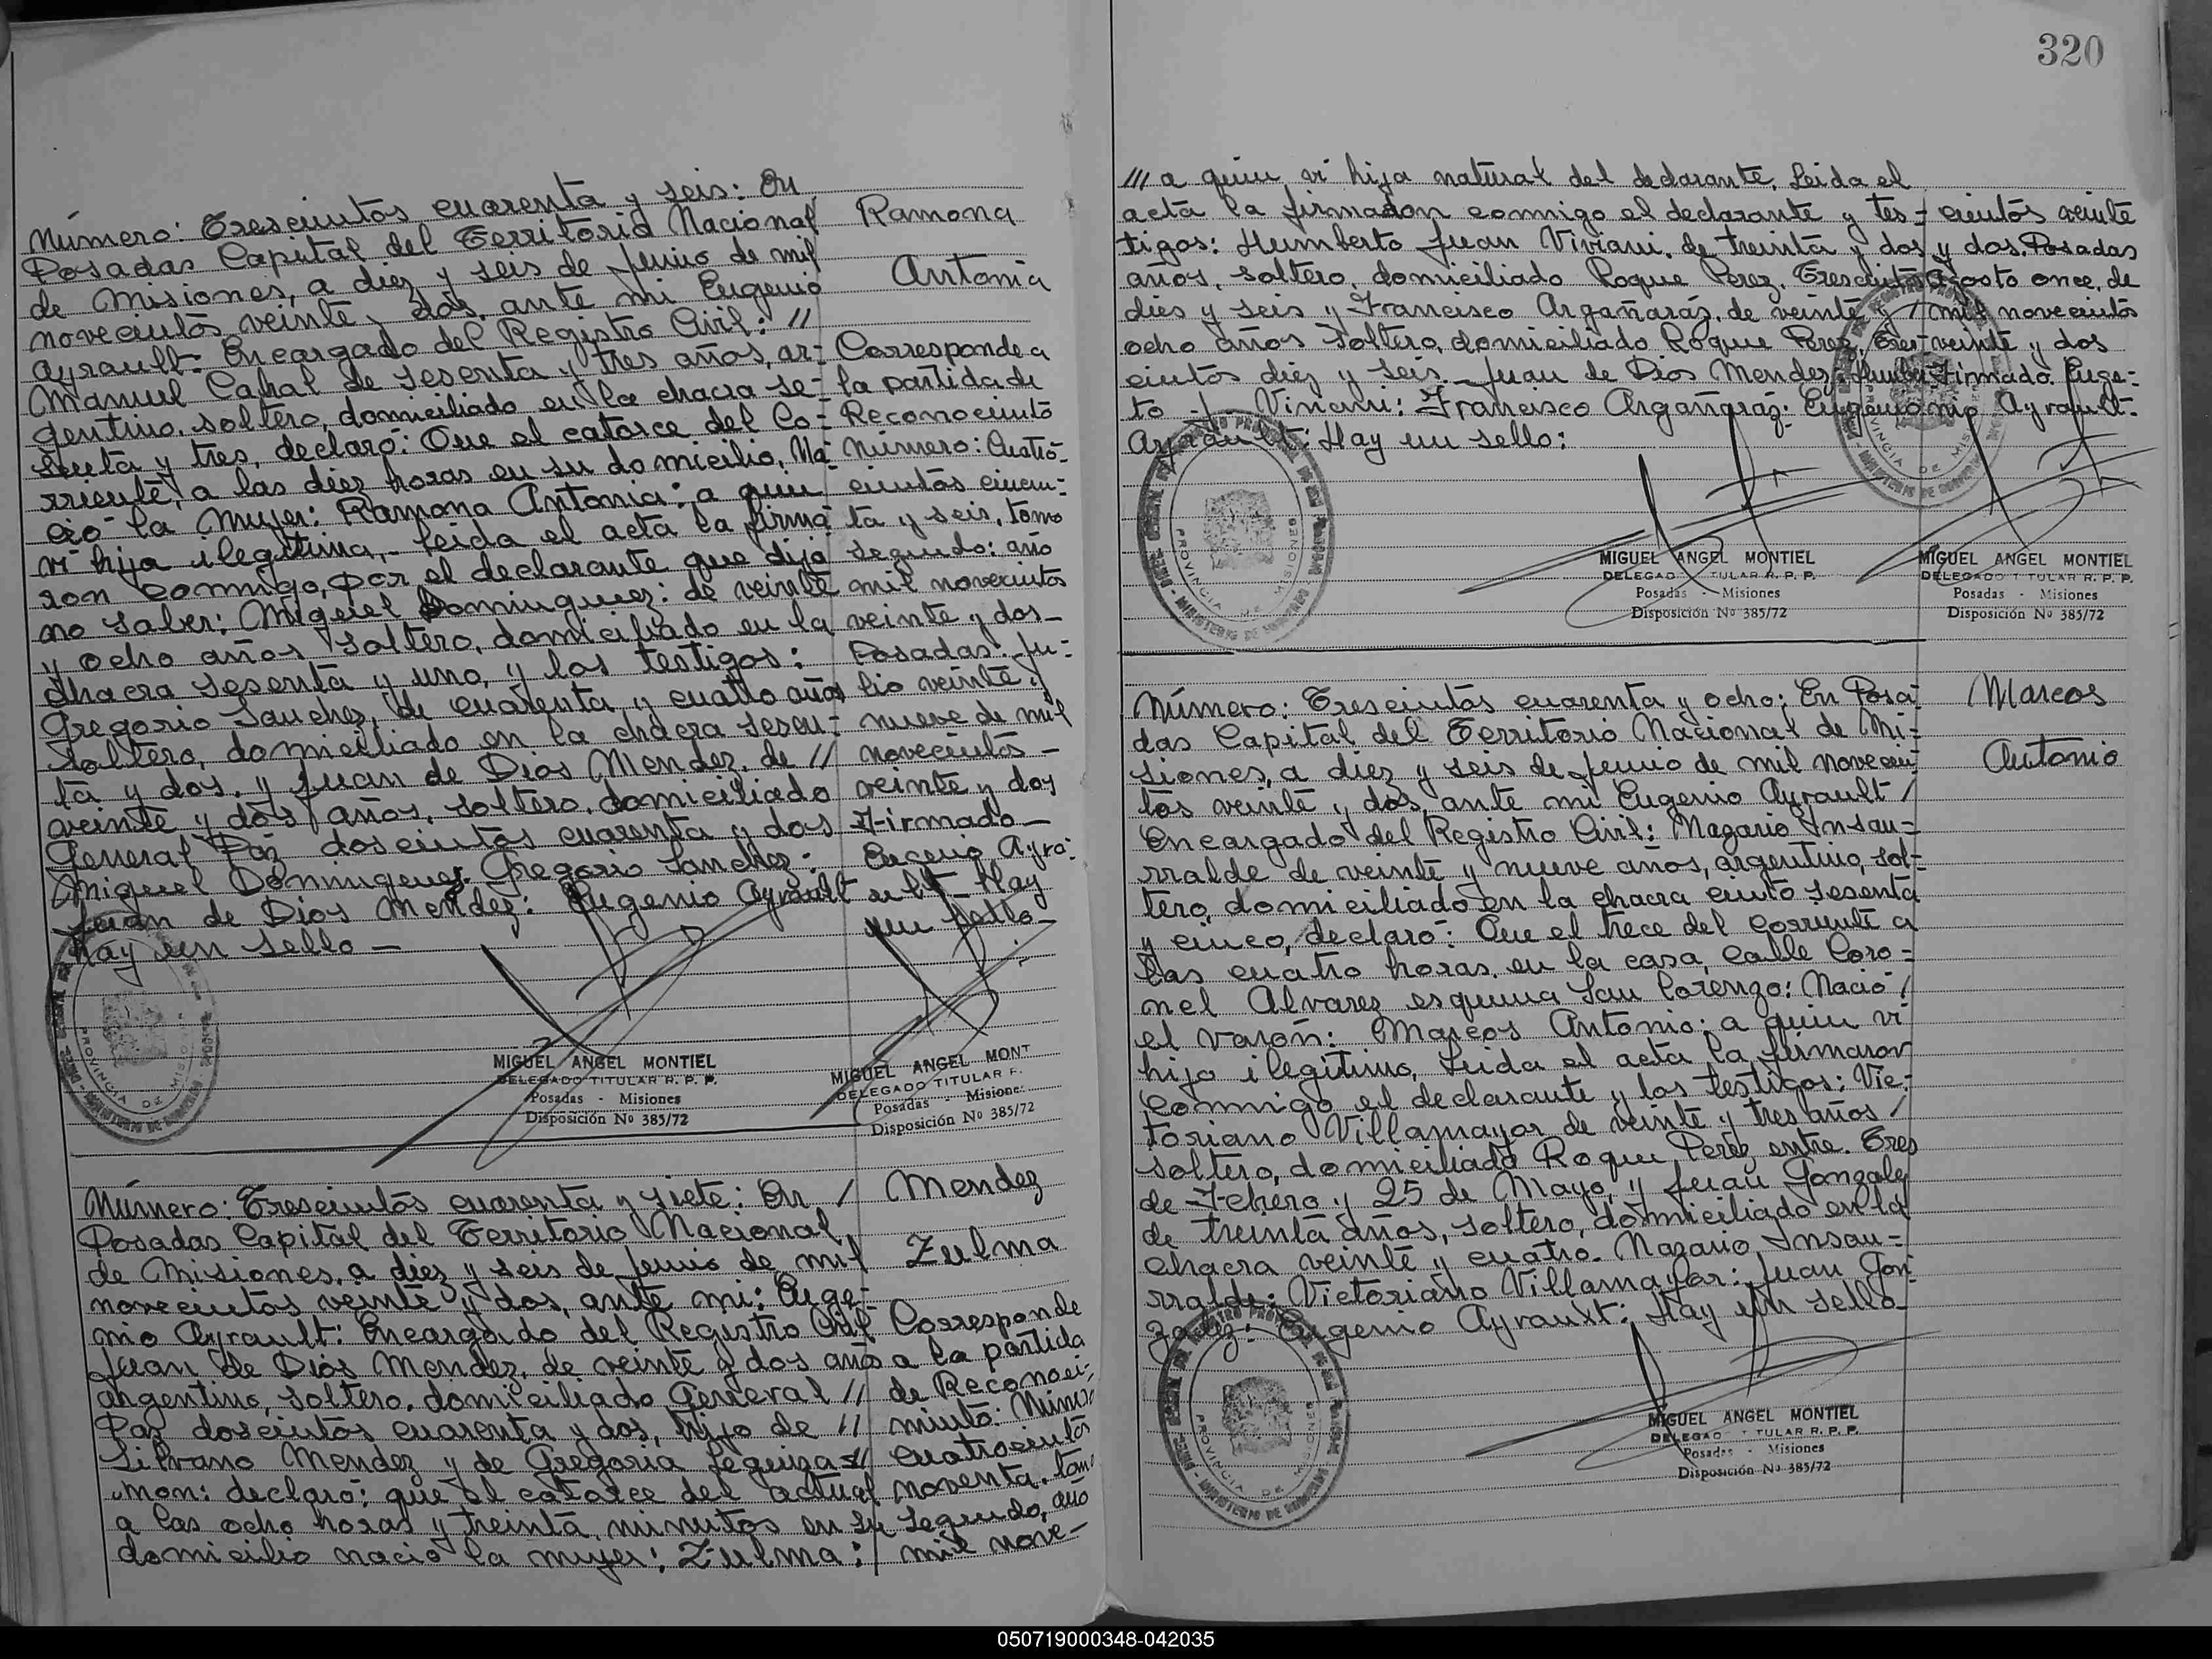 Número: Trescientos cuarenta y seis: En
Posadas Capital del Territorio Nacional
de Misiones, a diez y seis de Junio de mil
novecientos veinte y dos, ante mi Eugenio
Ayrault: Encargado del Registro Civil: //
Manuel Cabral de sesenta y tres años, ar-
gentino, soltero, domiciliado en la chacra se-
senta y tres, declaró: Que el catorce del Co-
rriente, a las diez horas en su domicilio, Na-
ció la Mujer: Ramona Antonia: a quien
vi hija ilegitima,- Leida el acta la firma-
ron conmigo, por el declarante que dijo
no saber: Miguel Dominguez: de veinte
y ocho años soltero, domiciliado en la
chacra sesenta y uno, y los testigos:
Gregorio Sanchez, de cuarenta y cuatro años
soltero, domiciliado en la chacra sesen-
ta y dos, y Juan de Dios Mendez, de //
veinte y dos años, soltero, domiciliado
General Paz doscientos cuarenta y dos
Miguel Dominguez. Gregorio Sanchez:
Juan de Dios Mendez: Eugenio Ayrault
Hay un sello -
Ramona
Antonia
Corresponde a
la partida de
Reconocimiento
Número: Cuatro-
cientos cincuen-
ta y seis, tomo
segundo: año
mil novecientos
veinte y dos-
Posadas: Ju-
lio veinte y
nueve de mil
novecientos -
veinte y dos
Firmado -
Eugenio Ayra-
ult - Hay
un sello -
MIGUEL ANGEL MONTIEL
DELEGADO TITULAR R. P. P.
Posadas - Misiones
Disposición Nº 385/72
MIGUEL ANGEL MONT
DELEGADO TITULAR R.
Posadas - Misiones
Disposición Nº 385/72
Número: Trescientos cuarenta y siete: En /
Posadas Capital del Territorio Nacional
de Misiones, a diez y seis de Junio de mil
novecientos veinte y dos, ante mi: Euge-
nio Ayrault: Encargado del Registro Civil
Juan de Dios Mendez, de veinte y dos años
argentino, soltero, domiciliado General //
Paz doscientos cuarenta y dos, hijo de //
Silvano Mendez y de Gregoria Leguiza //
mon: declaró: que el catorce del actual
a las ocho horas y treinta minutos en su
domicilio nació la mujer: Zulma:
Mendez
Zulma
Corresponde
a la partida
de Reconoci-
miento: Número
cuatrocientos
noventa. tomo
segundo, año
mil nove-
320
/// a quien vi hija natural del declarante. Leida el
acta la firmaron conmigo el declarante y tes-
tigos: Humberto Juan Viviani, de treinta y dos
años, soltero, domiciliado Roque Perez. Trescientos
diez y seis y Francisco Argañaráz, de veinte y /
ocho años soltero, domiciliado Roque Perez, tres-
cientos diez y seis.- Juan de Dios Mendez: Humber-
to J. Viviani: Francisco Argañaráz: Eugenio
Ayrault: Hay un sello:
cientos veinte
y dos. Posadas
Agosto once, de
mil novecientos
veinte y dos
Firmado. Euge-
nio Ayrault-
MIGUEL ANGEL MONTIEL
DELEGADO TITULAR R. P. P.
Posadas - Misiones
Disposición Nº 385/72
MIGUEL ANGEL MONTIEL
DELEGADO TITULAR R. P. P.
Posadas - Misiones
Disposición Nº 385/72
Número: Trescientos cuarenta y ocho: En Posa-
das Capital del Territorio Nacional de Mi-
siones, a diez y seis de Junio de mil novecien-
tos veinte y dos, ante mi Eugenio Ayrault /
Encargado del Registro Civil: Nazario Insau-
rralde de veinte y nueve años, argentino, sol-
tero, domiciliado en la chacra ciento sesenta
y cinco, declaró: Que el trece del Corriente a
las cuatro horas, en la casa, Calle Coro-
nel Alvarez esquina San Lorenzo: Nació /
el varón: Marcos Antonio: a quien vi
hijo ilegitimo, Leida el acta la firmaron
Conmigo el declarante y los testigos: Vic-
toriano Villamayor de veinte y tres años /
soltero, domiciliado Roque Perez entre. Tres
de Febrero y 25 de Mayo, y Juan Gonzalez
de treinta años, soltero, domiciliado en la
chacra veinte y cuatro. Nazario Insau-
rralde: Victoriano Villamayor: Juan Gon-
zalez: Eugenio Ayrault: Hay un sello-
Marcos
Antonio
MIGUEL ANGEL MONTIEL
DELEGADO TITULAR R. P. P.
Posadas - Misiones
Disposición Nº 385/72
050719000348-042035